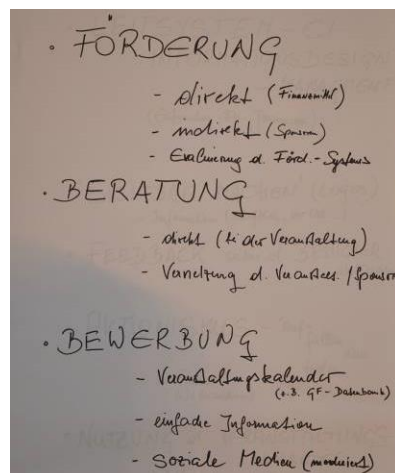 · FÖRDERUNG
- direkt (Finanzmittel)
- indirekt (Sponsoren)
- Evaluierung d. Förd.-Systems
· BERATUNG
- direkt (bei der Veranstaltung)
- Vernetzung d. Veranst. / Sponsor
· BEWERBUNG
- Veranstaltungskalender
(z.B. GF-Datenbank)
- einfache Information
- Soziale Medien